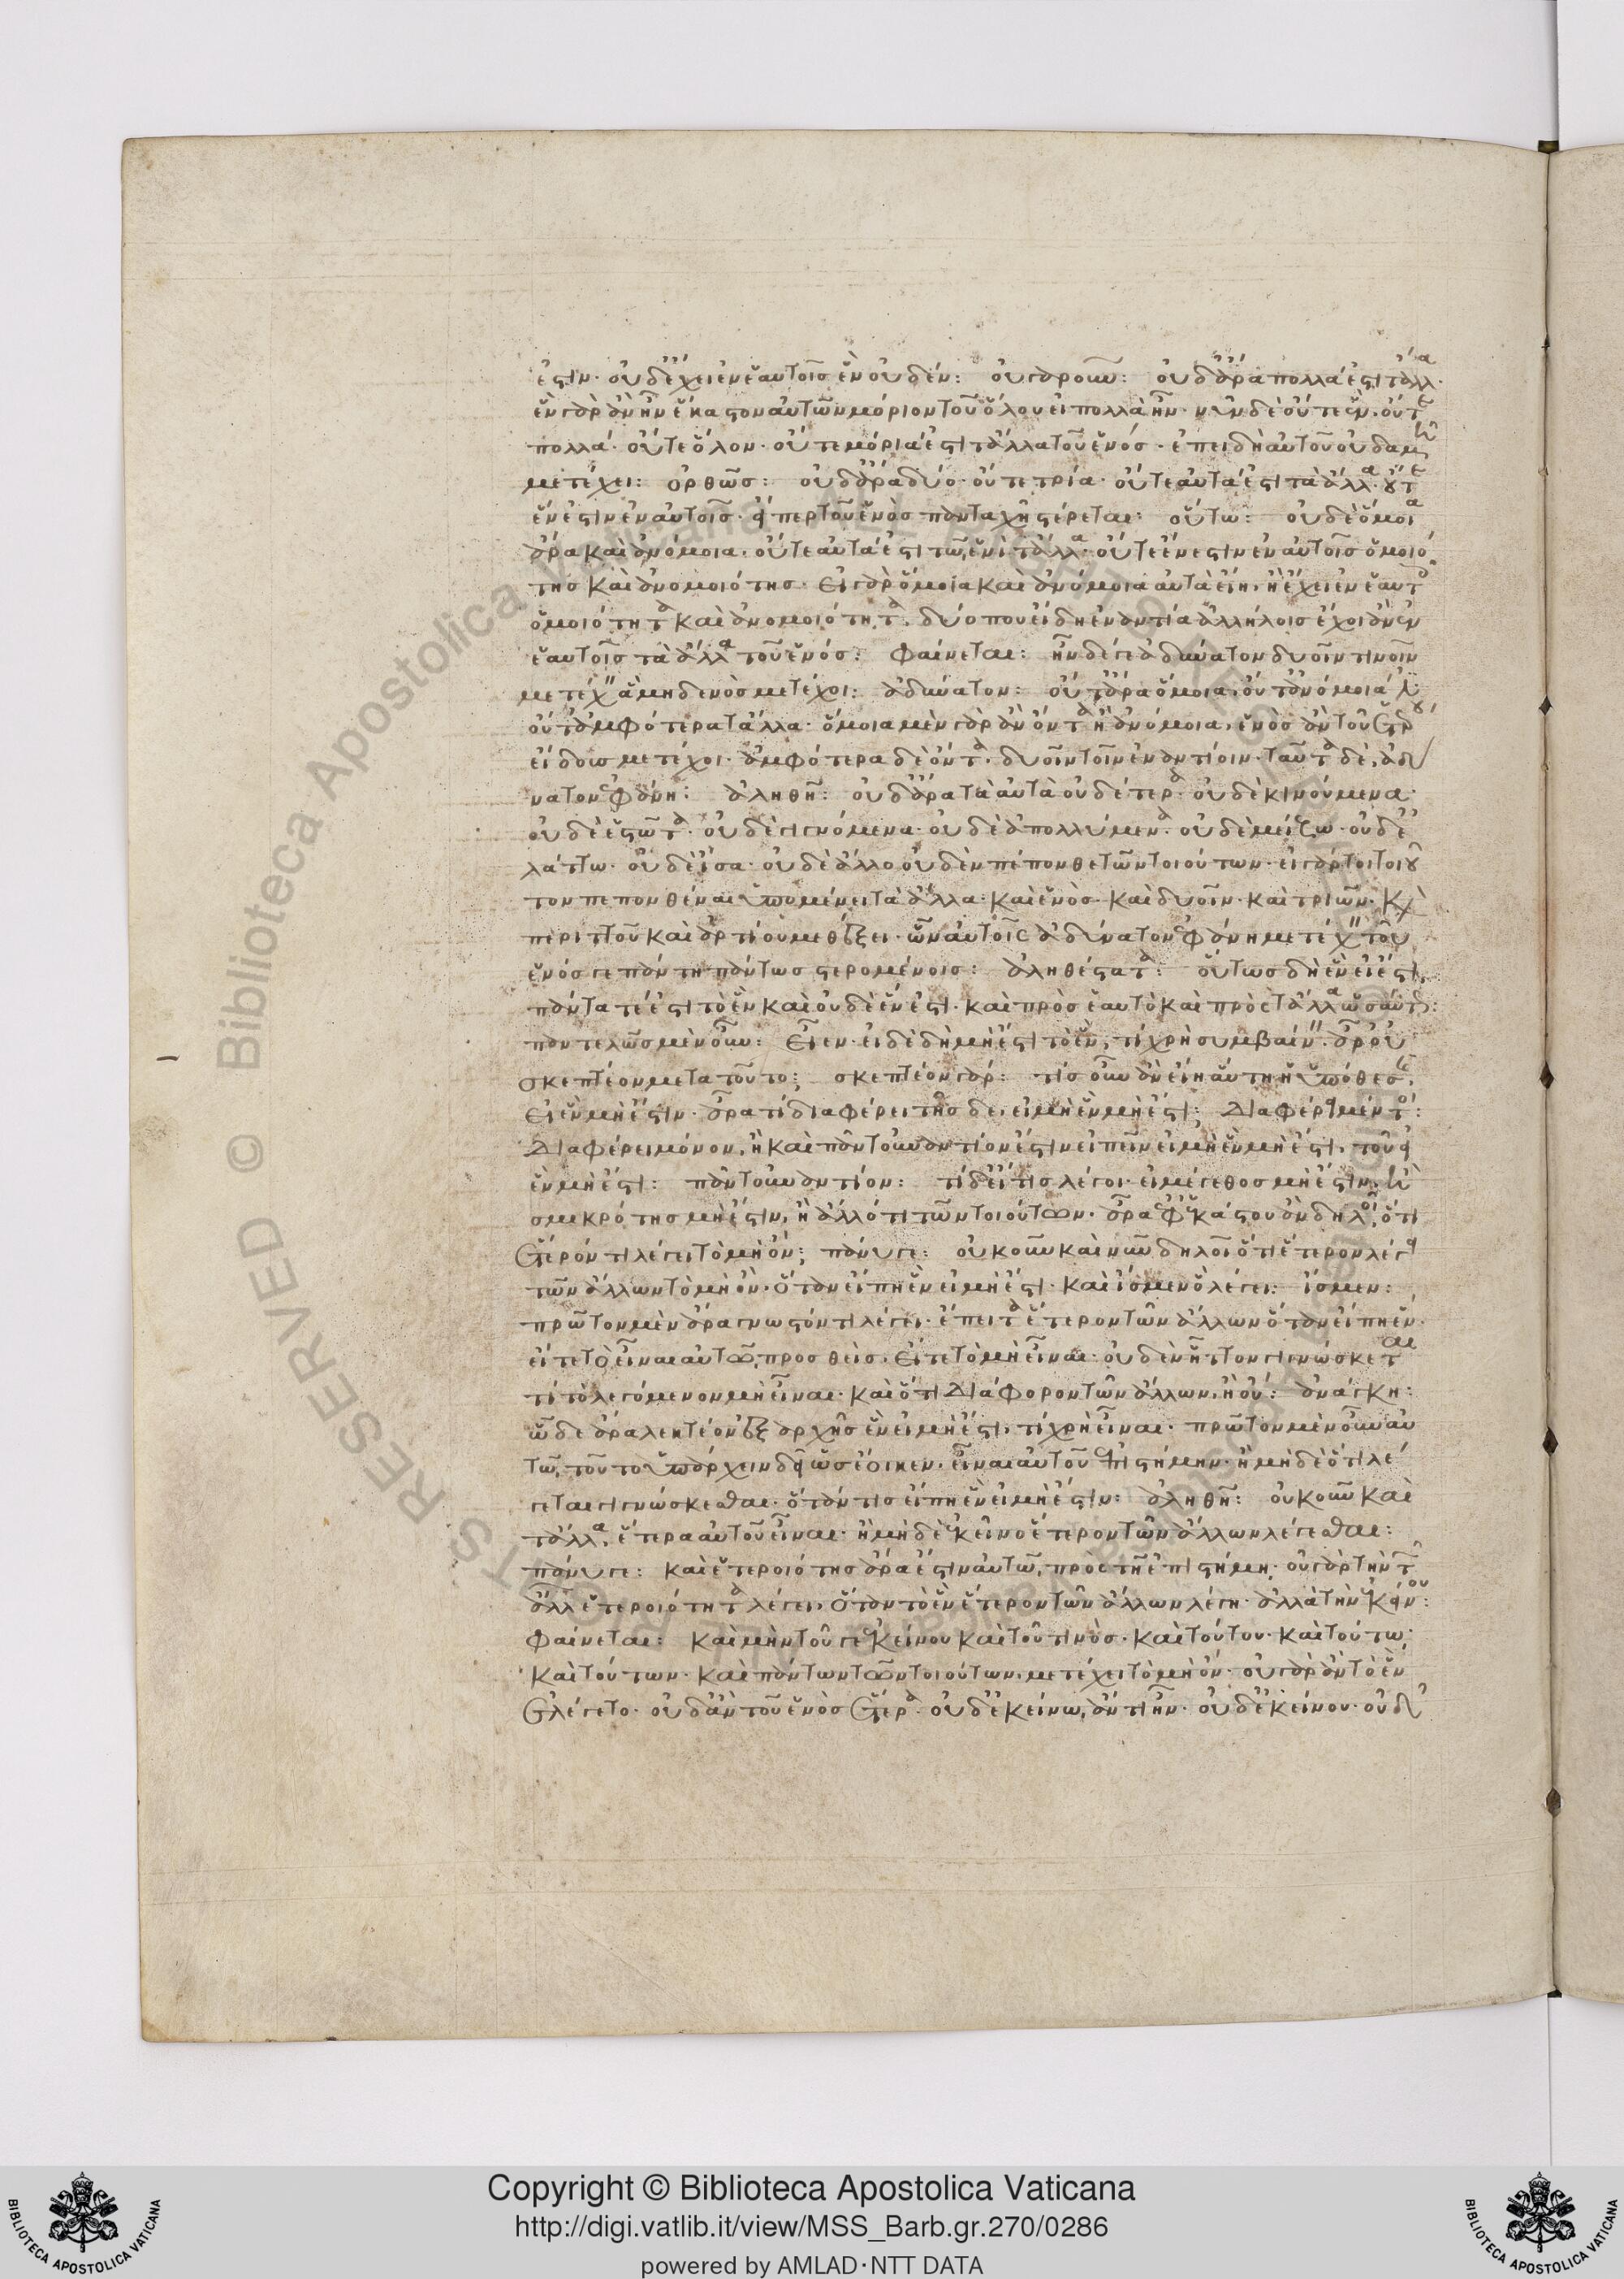 ἐστιν· οὐδ' ἔχει ἐν ἑαυτοῖς ἓν οὐδέν: οὐ γὰρ οὖν: οὐδ' ἄρα πολλά ἐστι τἆλλα·
ἓν γὰρ ἂν ἦν ἕκαστον αὐτῶν μόριον τοῦ ὅλου εἰ πολλὰ ἦν· νῦν δὲ οὔτε ἕν· οὔτε
πολλά· οὔτε ὅλον· οὔτε μόριά ἐστι τἆλλα τοῦ ἑνός· ἐπειδὴ αὐτοῦ οὐδαμῇ
μετέχει: ὀρθῶς: οὐδ' ἄρα δύο· οὔτε τρία· οὔτε αὐτά ἐστι τὰ ἄλλα· οὔτε
ἔνεστιν ἐν αὐτοῖς· εἴπερ τοῦ ἑνὸς πανταχῇ στέρεται: οὕτω: οὐδὲ ὅμοια
ἄρα καὶ ἀνόμοια· οὔτε αὐτά ἐστι τῷ ἑνὶ τἆλλα· οὔτε ἔνεστιν ἐν αὐτοῖς ὁμοιό
της καὶ ἀνομοιότης· εἰ γὰρ ὅμοια καὶ ἀνόμοια αὐτὰ εἴη· ἢ ἔχει ἐν ἑαυτοῖς
ὁμοιότητα καὶ ἀνομοιότητα· δύο που εἴδη ἐναντία ἀλλήλοις ἔχοι ἂν ἐν
ἑαυτοῖς τὰ ἄλλα τοῦ ἑνός: φαίνεται: ἦν δέ γε ἀδύνατον δυοῖν τινοῖν
μετέχειν ἃ μηδενὸς μετέχοι: ἀδύνατον: οὔτ' ἄρα ὅμοια· οὔτ' ἀνόμοιά ἐστι
οὔτ' ἀμφότερα τἆλλα· ὅμοια μὲν γὰρ ἂν ὄντα ἢ ἀνόμοια· ἑνὸς ἂν τοῦ ἑτέρου
εἴδους μετέχοι· ἀμφότερα δὲ ὄντα· δυοῖν τοῖν ἐναντίοιν· ταῦτα δὲ, ἀδύ
νατον ἐφάνη: ἀληθῆ: οὐδ' ἄρα τὰ αὐτὰ οὐδ' ἕτερα· οὐδὲ κινούμενα·
οὐδὲ ἑστῶτα· οὐδὲ γιγνόμενα· οὐδὲ ἀπολλύμενα· οὐδὲ μείζω· οὐδὲ ἐ
λάττω· οὐδὲ ἴσα· οὐδὲ ἄλλο οὐδὲν πέπονθε τῶν τοιούτων· εἰ γάρ τι τοιοῦ
τον πεπονθέναι ὑπομένει τὰ ἄλλα· καὶ ἑνὸς· καὶ δυοῖν· καὶ τριῶν· καὶ
περιττοῦ καὶ ἀρτίου μεθέξει· ὧν αὐτοῖς ἀδύνατον ἐφάνη μετέχειν τοῦ
ἑνός γε πάντῃ πάντως στερομένοις: ἀληθέστατα: οὕτως δὴ ἓν εἰ ἔστι,
πάντα τέ ἐστι τὸ ἓν καὶ οὐδὲ ἕν ἐστι· καὶ πρὸς ἑαυτὸ καὶ πρὸς τἆλλα ὡσαύτως:
παντελῶς μὲν οὖν: εἶεν· εἰ δὲ δὴ μὴ ἔστι τὸ ἕν, τί χρὴ συμβαίνειν· ἆρ' οὐ
σκεπτέον μετὰ τοῦτο; σκεπτέον γάρ: τίς οὖν ἂν εἴη αὕτη ἡ ὑπόθεσις,
εἰ ἓν μὴ ἔστιν· ἆρά τι διαφέρει τῆσδε, εἰ μὴ ἓν μὴ ἔστι; διαφέρει μέντοι:
διαφέρει μόνον, ἢ καὶ πᾶν τοὐναντίον ἐστὶν εἰπεῖν εἰ μὴ ἓν μὴ ἔστι, τοῦ εἰ
ἓν μὴ ἔστι: πᾶν τοὐναντίον: τί δ' εἴ τις λέγοι· εἰ μέγεθος μὴ ἔστιν, ἢ
σμικρότης μὴ ἔστιν, ἢ ἄλλό τι τῶν τοιούτων· ἆρα ἐφ' ἑκάστου ἂν δηλοῖ, ὅτι
ἕτερόν τι λέγει τὸ μὴ ὄν; πάνυ γε: οὐκοῦν καὶ νῦν δηλοῖ ὅτι ἕτερον λέγει
τῶν ἄλλων τὸ μὴ ὂν· ὅταν εἴπῃ ἓν εἰ μὴ ἔστι· καὶ ἴσμεν ὃ λέγει: ἴσμεν:
πρῶτον μὲν ἄρα γνωστόν τι λέγει· ἔπειτα ἕτερον τῶν ἄλλων ὅταν εἴπῃ ἕν·
εἴτε τὸ εἶναι αὐτῷ προσθείς· εἴτε τὸ μὴ εἶναι· οὐδὲν ἧττον γιγνώσκεται
τί τὸ λεγόμενον μὴ εἶναι· καὶ ὅτι διάφορον τῶν ἄλλων, ἢ οὔ: ἀνάγκη:
ὧδε ἄρα λεκτέον ἐξ ἀρχῆς ἓν εἰ μὴ ἔστι, τί χρὴ εἶναι· πρῶτον μὲν οὖν αὐ
τῷ τοῦτο ὑπάρχειν δεῖ ὡς ἔοικεν, εἶναι αὐτοῦ ἐπιστήμην· ἢ μηδὲ ὅτι λέ
γεται γιγνώσκεσθαι· ὅταν τις εἴπῃ ἓν εἰ μὴ ἔστιν: ἀληθῆ: οὐκοῦν καὶ
τἆλλα ἕτερα αὐτοῦ εἶναι· ἢ μηδὲ ἐκεῖνο ἕτερον τῶν ἄλλων λέγεσθαι:
πάνυ γε: καὶ ἑτεροιότης ἄρα ἐστὶν αὐτῷ πρὸς τῇ ἐπιστήμῃ· οὐ γὰρ τὴν τῶν
ἄλλων ἑτεροιότητα λέγει, ὅταν τὸ ἓν ἕτερον τῶν ἄλλων λέγῃ· ἀλλὰ τὴν ἐκείνου:
φαίνεται: καὶ μὴν τοῦ γε ἐκείνου καὶ τοῦ τινὸς· καὶ τούτου· καὶ τούτῳ·
καὶ τούτων· καὶ πάντων τῶν τοιούτων μετέχει τὸ μὴ ὂν· οὐ γὰρ ἂν τὸ ἓν
ἐλέγετο· οὐδ' ἂν τοῦ ἑνὸς ἕτερα· οὐδ' ἐκείνῳ ἄν τι ἦν· οὐδ' ἐκείνου· οὐδ'
Copyright © Biblioteca Apostolica Vaticana
http://digi.vatlib.it/view/MSS_Barb.gr.270/0286
powered by AMLAD·NTT DATA